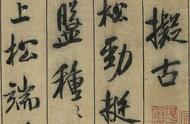 擬古
松勁挺
盤種〻
上松端